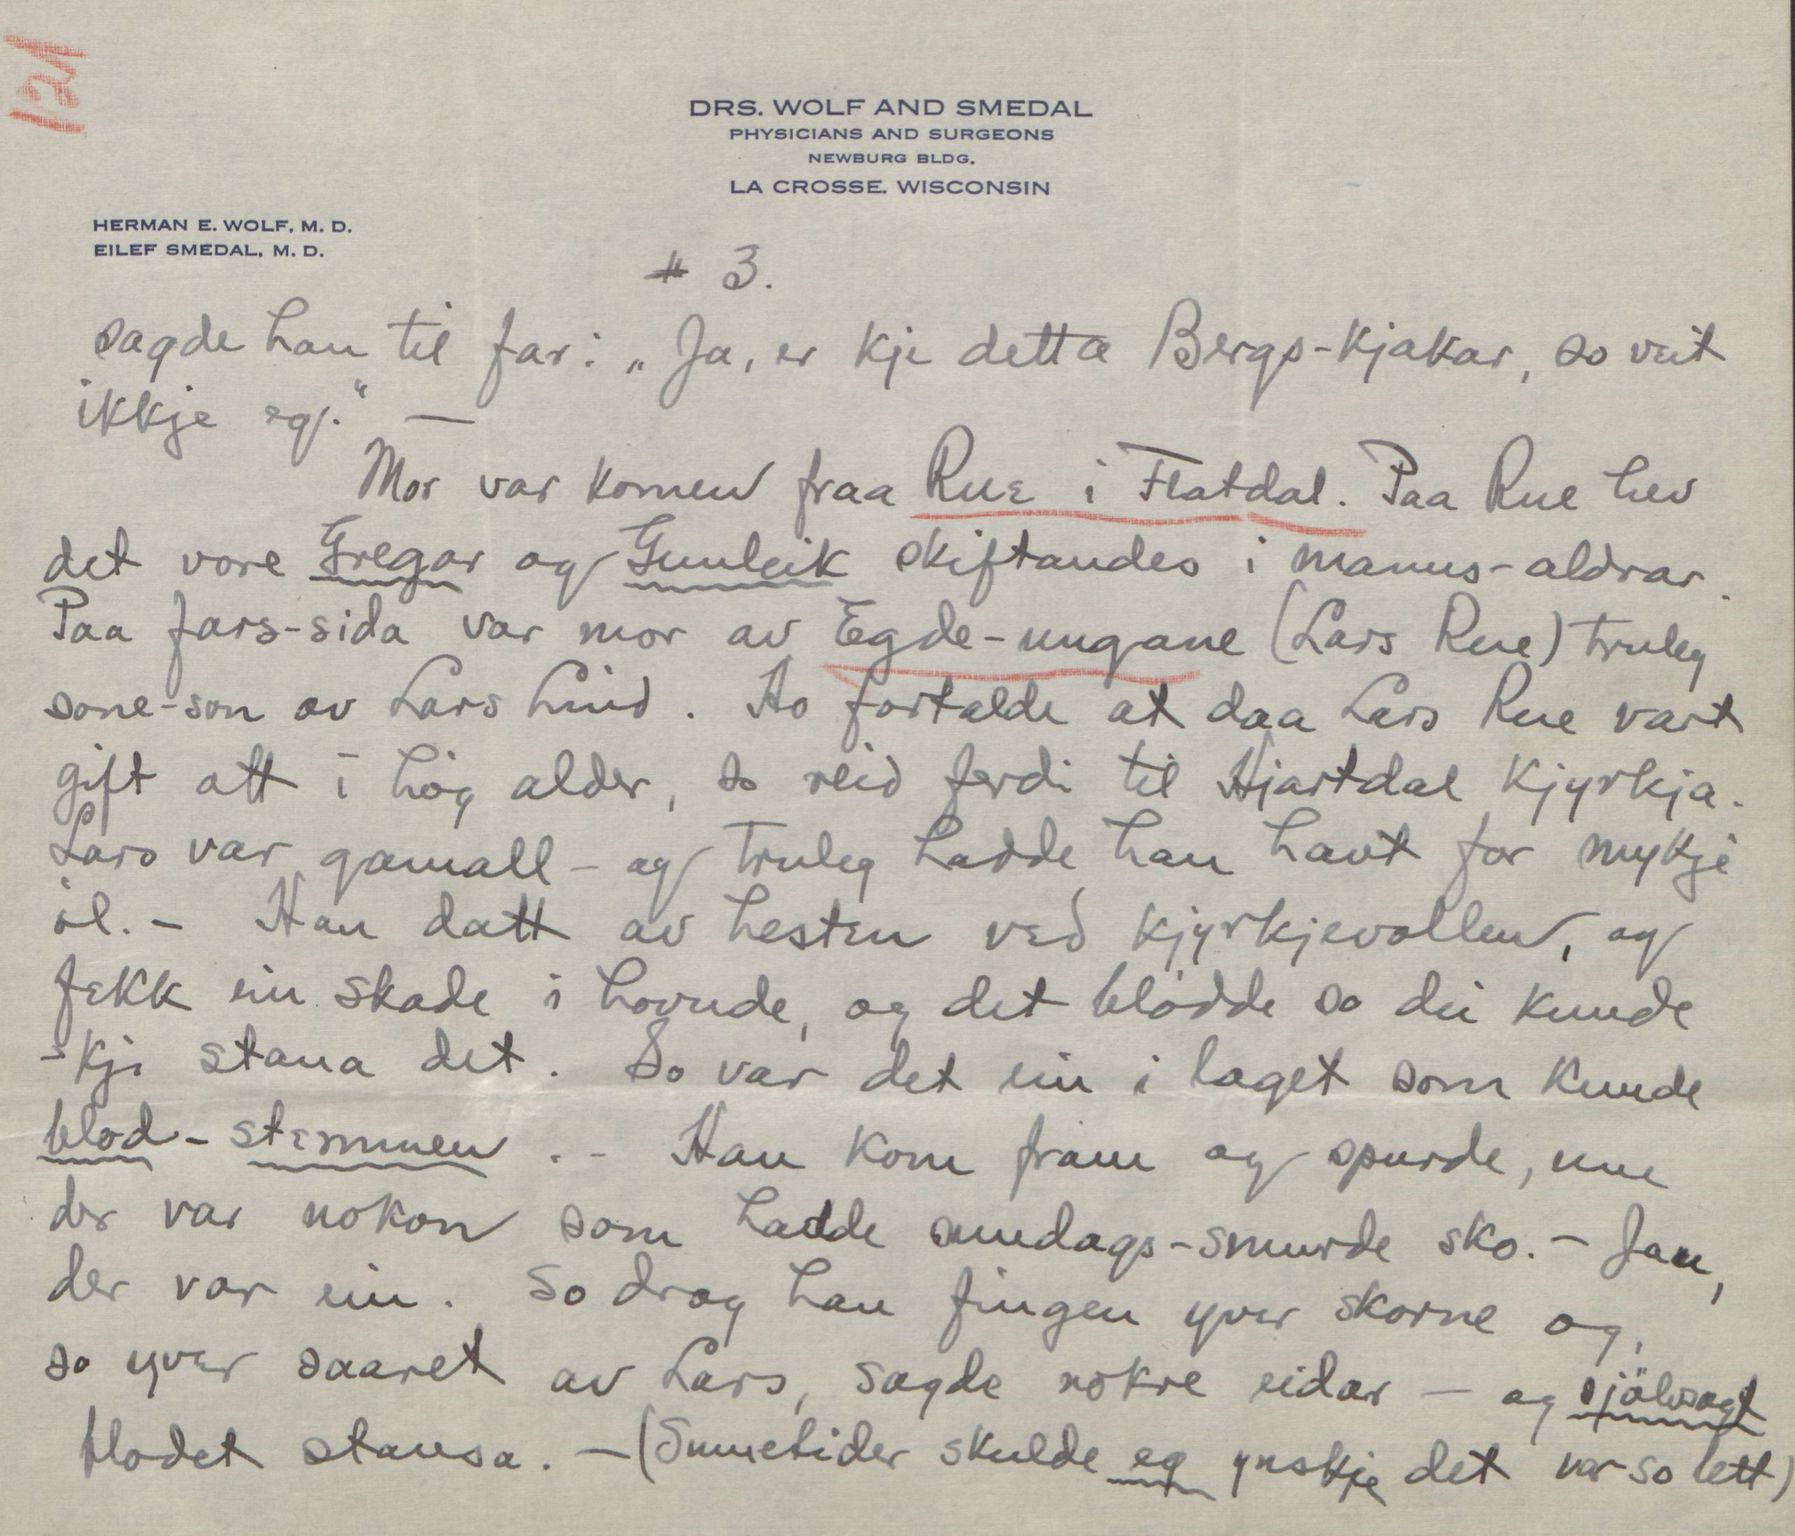 121
DRS. WOLF AND SMEDAL
PHYSICIANS AND SURGEONS
NEWBURG BLDG.
LA CROSSE, WISCONSIN
HERMAN E. WOLF, M. D.
EILEF SMEDAL, M. D.
# 3.
sagde han til far: „Ja, er kje detta Bergs-kjakar, so veit
ikkje eg." —
Mor var komen fraa Rue i Flatdal. Paa Rue hev
det vore Gregar og Gunleik skiftandes i manns-aldrar.
Paa fars-sida var mor av Egde-ungane (Lars Rue) truleg
sone-son av Lars Lind. Ho fortalde at daa Lars Rue vart
gift att i høg alder, so reid ferdi til Hjartdal Kjyrkja.
Lars var gamall - og truleg hadde han havt for mykje
øl. - Han datt av hesten ved Kjyrkjevollen, og
fekk ein skade i hovude, og det blødde so dei kunde
-kji stana det. So var det ein i laget som kunde
blod-stemmen. - Han kom fram og spurde, um
der var nokon som hadde sundags-smurde sko. - Jau,
der var ein. So drog han fingen yver skorne og,
so yver saaret av Lars, sagde nokre eidar — og sjölvsagt
blodet stansa. — (Sumetider skulde eg ynskje det var so lett)